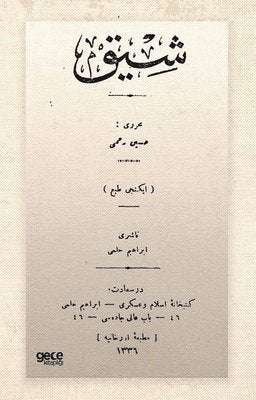 شيق
محررى :
حسين رحمى
( ايكنجى طبع )
ناشرى
ابراهيم حلمى
درسعادت
كتبخانۀ اسلام و عسكرى — ابراهيم حلمى
٤٦ — باب عالى جاده‌سى — ٤٦
[ مطبعۀ اورخانيه ]
١٣٣٦
gece
kitaplığı